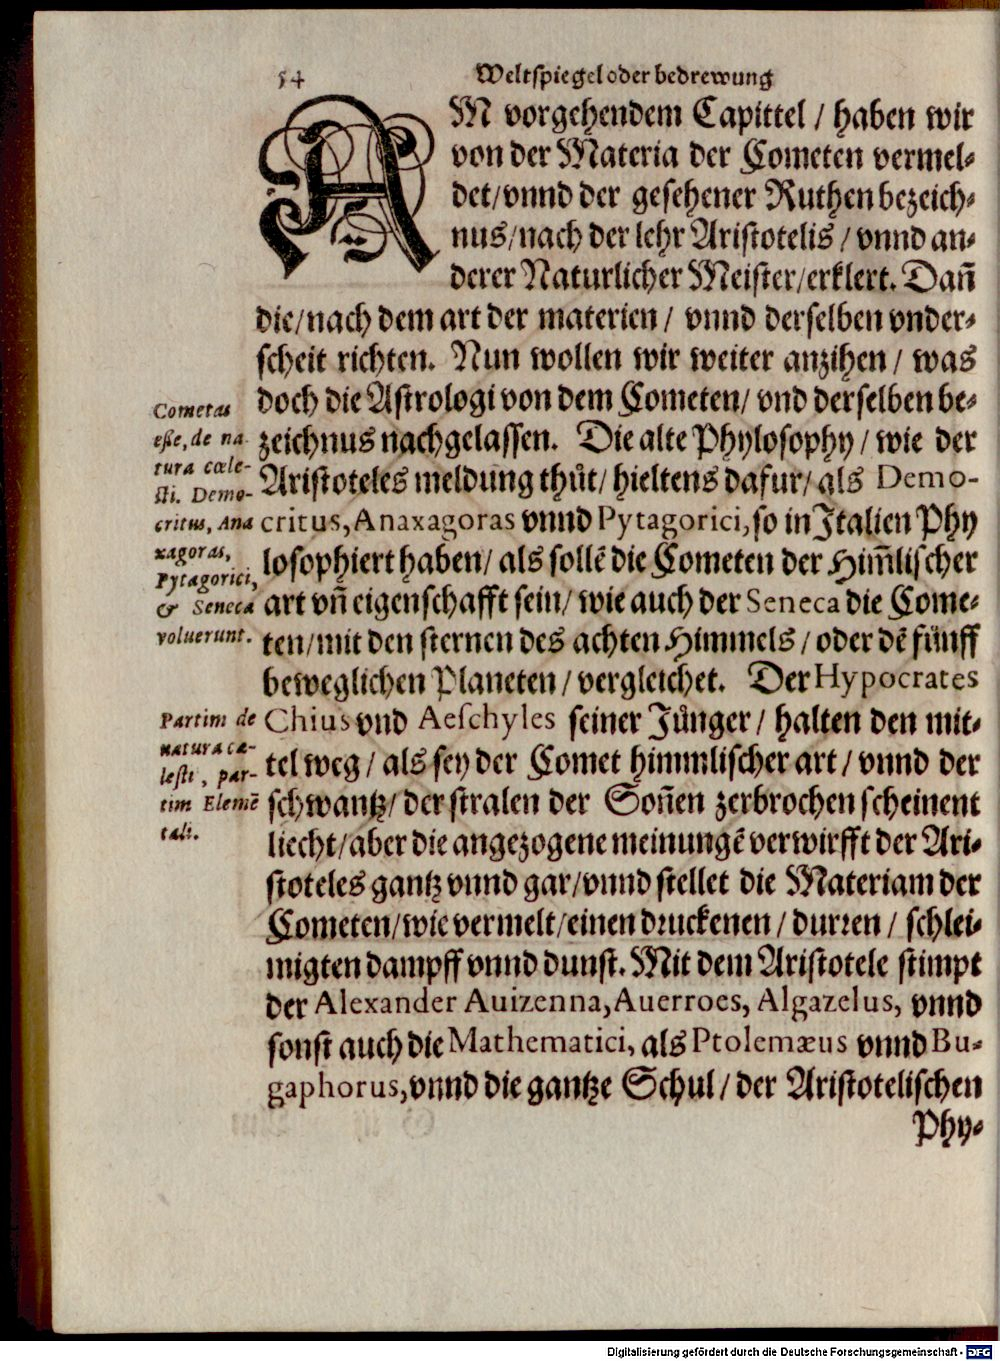 54
Weltspiegel oder bedrewung
AM vorgehendem Capittel / haben wir
von der Materia der Cometen vermel⸗
det/vnnd der gesehener Ruthen bezeich⸗
nus/nach der lehr Aristotelis / vnnd an⸗
derer Naturlicher Meister/erklert. Dañ
die/nach dem art der materien / vnnd derselben vnder⸗
scheit richten. Nun wollen wir weiter anzihen / was
doch die Astrologi von dem Cometen/ vnd derselben be⸗
zeichnus nachgelassen. Die alte Phylosophy / wie der
Aristoteles meldung thůt/ hieltens dafur/ als Demo-
critus, Anaxagoras vnnd Pytagorici, so in Italien Phy
losophiert haben/ als sollē die Cometen der Him̃lischer
art vñ eigenschafft sein/ wie auch der Seneca die Come⸗
ten/mit den sternen des achten Himmels / oder dē fünff
beweglichen Planeten / vergleichet. Der Hypocrates
Chius vnd Aeschyles seiner Jůnger / halten den mit⸗
tel weg / als sey der Comet himmlischer art / vnnd der
schwantz/ der stralen der Soñen zerbrochen scheinent
liecht/aber die angezogene meinungē verwirfft der Ari⸗
stoteles gantz vnnd gar/vnnd stellet die Materiam der
Cometen/wie vermelt/einen druckenen / durren / schlei⸗
migten dampff vnnd dunst. Mit dem Aristotele stimpt
der Alexander Auizenna, Auerroes, Algazelus, vnnd
sonst auch die Mathematici, als Ptolemæus vnnd Bu⸗
gaphorus, vnnd die gantze Schul / der Aristotelischen
Phy⸗
Cometas
eße, de na-
tura cœle-
sti. Demo-
critus, Ana
xagoras,
Pytagorici,
& Seneca
voluerunt.
Partim de
natura cæ-
lesti, par-
tim Elemē
tali.
Digitalisierung gefördert durch die Deutsche Forschungsgemeinschaft - DFG